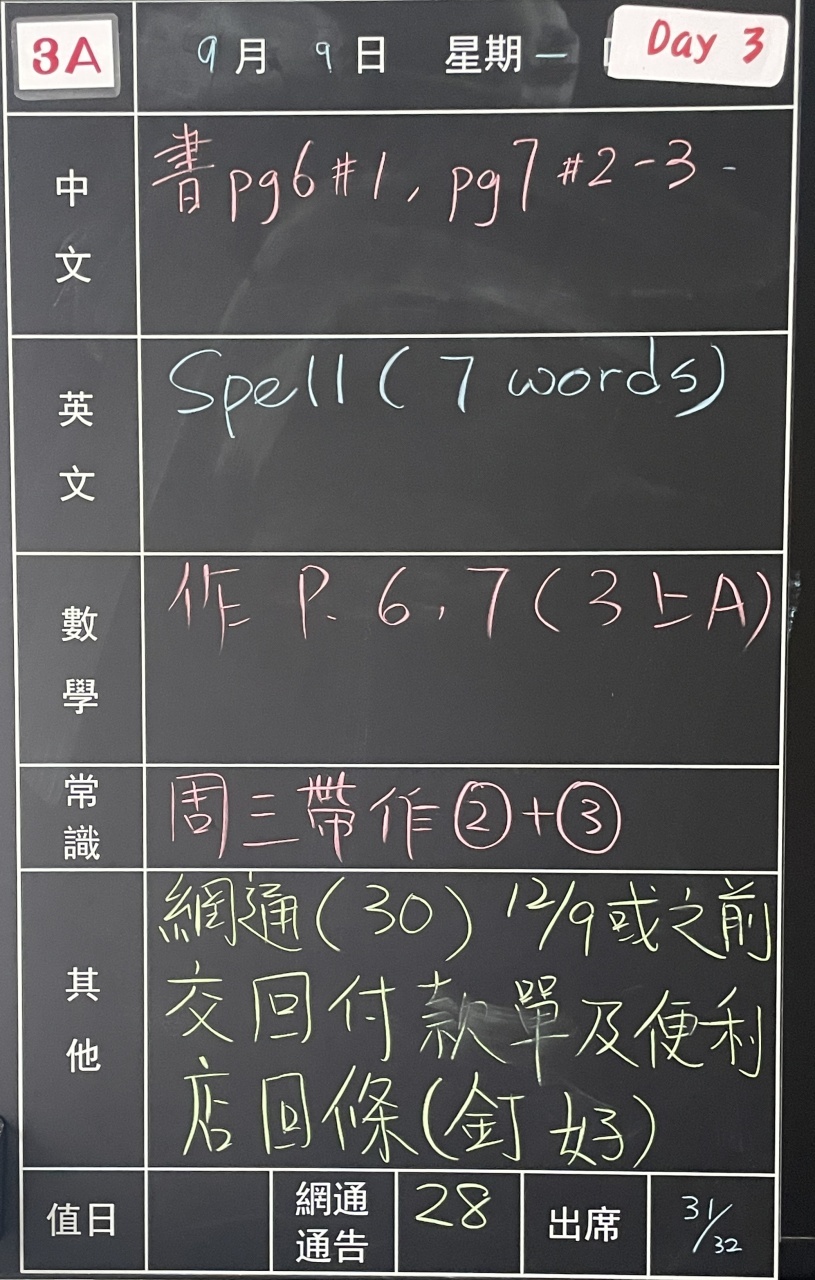 3A 9月9日 星期一 Day 3
中文 書pg6#1, pg7#2-3
英文 Spell(7 words)
數學 作 P. 6, 7(3上A)
常識 周三帶作②+③
其他 網通(30) 12/9或之前
交回付款單及便利
店回條(釘好)
值日 網通通告 28 出席 31/32